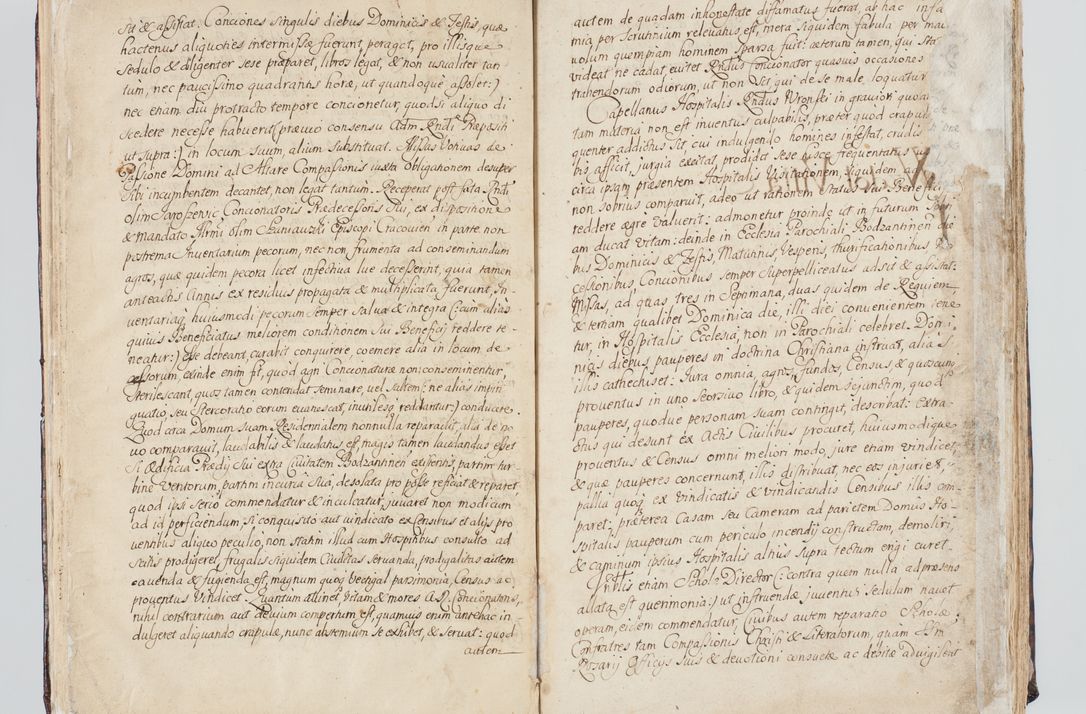 sit & assistat. Conciones singulis diebus Dominicis & Festis, quæ
hactenus aliquoties intermissæ fuerunt, peragat, pro illisque
sedulo & diligenter sese præparet, libros legat, & non usualiter tan
tum, nec paucissimo quadrantis horæ, ut quandoque assolet:)
nec etiam diu protracto tempore concionetur, quodsi aliquo di
scedere necesse habuerit (prævio consensu Adm Rndi Præpositi
ut supra:) in locum suum, alium substituat. Missas Votivas de
Passione Domini ad Altare Compassionis iuxta obligationem desuper
sibi incumbentem decantet, non legat tantum. Receperat post fata Rndi
olim Concionatoris Prædecessoris Sui, ex dispositione
& mandato Illrmi olim Szaniawski Episcopi Cracovien in parte non
postrema Inventarium pecorum, nec non frumenta ad conseminandum
agros, quæ quidem pecora licet infectiva lue decesserint, quia tamen
anteactis Annis ex residuis propagata & multiplicata fuerunt, In
ventariaq huiusmodi pecorum semper salva & integra (:cum aliàs
quivis Beneficiatus meliorem conditionem sui Beneficij reddere te-
neatur:) esse debeant, curabit conquirere, coemere alia in locum de
cessorum, exinde enim fit, quod agri Concionaturæ non conseminentur,
sterilescant, quos tamen contendat seminare, vel saltem (:ne alias impin
guatio, seu stercoratio eorum evanescat, inutilesq reddantur:) conducere.
Quod circa Domum suam Residentialem nonnulla reparavit, alia de no
vo comparavit, laudabilis & laudatus est, magis tamen laudandus esset
si ædificia Prædij sui extra Civitatem Bodzantinen existentis, partim tur
bine ventorum, partim incuria sua, desolata pro posse reficiat & reparet,
quod ipsi serio commendatur & inculcatur, juvaret non modicum
ad id perficiendum, si conquisito aut vindicato ex Censibus et alijs pro
ventibus aliquo peculio, non statim illud cum Hospitibus consulto ad
satis prodigere, frugalis siquidem Civilitas servanda, prodigalitas autem
cavenda & fugienda est, magnum quoq Vectigal parsimonia, Census ac
proventus vindicet. Quantum attinet vitam & mores ADR Concionatoris,
nihil contrarium aut devium compertum est, quamvis enim antehac in
dulgeret aliquando crapulæ, nunc abstemium se exhibet, & servat: quod
autem
autem de quadam inhonestate diffamatus fuerat, ab hac infa
mia per Scrutinium relevatus est, mera siquidem fabula per mali
volum quempiam hominem sparsa fuit: cæterum tamen, qui sta
videat ne cadat, evitet Rndus Concionator quasvis occasiones
trahendorum odiorum, ut non sit qui de se male loquatur
Capellanus Hospitalis Rndus Wronski in graviori quoad
tam materia non est inventus culpabilis, præter quod crapulæ
quenter addictus sit, cui indulgendo homines infestat, crudis
bis afficit, jurgia excitat, prodidit sese hisce frequentatis
circa ipsam præsentem Hospitalis Visitationem, siquidem
non sobrius comparuit, adeo ut rationem Status sui Beneficij
reddere ægre valuerit: admonetur proinde ut in futurum sobri
am ducat vitam: deinde in Ecclesia Parochiali Bodzantinen die
bus Dominicis & Festis, Matutinis, Vesperis, thurificationibus Pro
cessionibus, Concionibus semper superpelliceatus adsit & assistat:
Missas, ad quas tres in Septimana, duas quidem de Requiem
& tertiam qualibet Dominica die, illi diei convenientem tene
tur, in Hospitalis Ecclesia, non in Parochiali celebret. Domi
nicis diebus pauperes in doctrina Christiana instruat, alias
illos cathechiset: Jura omnia, agros, fundos, Census, & quoscunq
proventus in uno seorsivo libro, & quidem sejunctim, quod
pauperes, quodve personam suam contingit, describat: Extra-
ctus qui desunt ex Actis Civilibus procuret, huiusmodique
proventus & Census omni meliori modo, jure etiam vindicet,
& quæ pauperes concernunt, illis distribuat, nec eos injuriet,
pallia quoq ex vindicatis & vindicandis Censibus illis com-
paret: præterea Casam seu Cameram ad parietem Domus Ho-
spitalis pauperum cum periculo incendij constructam, demoliri,
& caminum ipsius Hospitalis altius supra tectum erigi curet.
etiam Scholæ Director (:contra quem nulla ad præsens
allata est querimonia:) ut instruendæ juventuti sedulam navet
operam, eidem commendatur, Civibus autem reparatio Scholæ
Confratres tam Compassionis Christi & Literatorum, quam
Rosarij Officijs suis & devotioni consuetæ ac debitæ advigilent